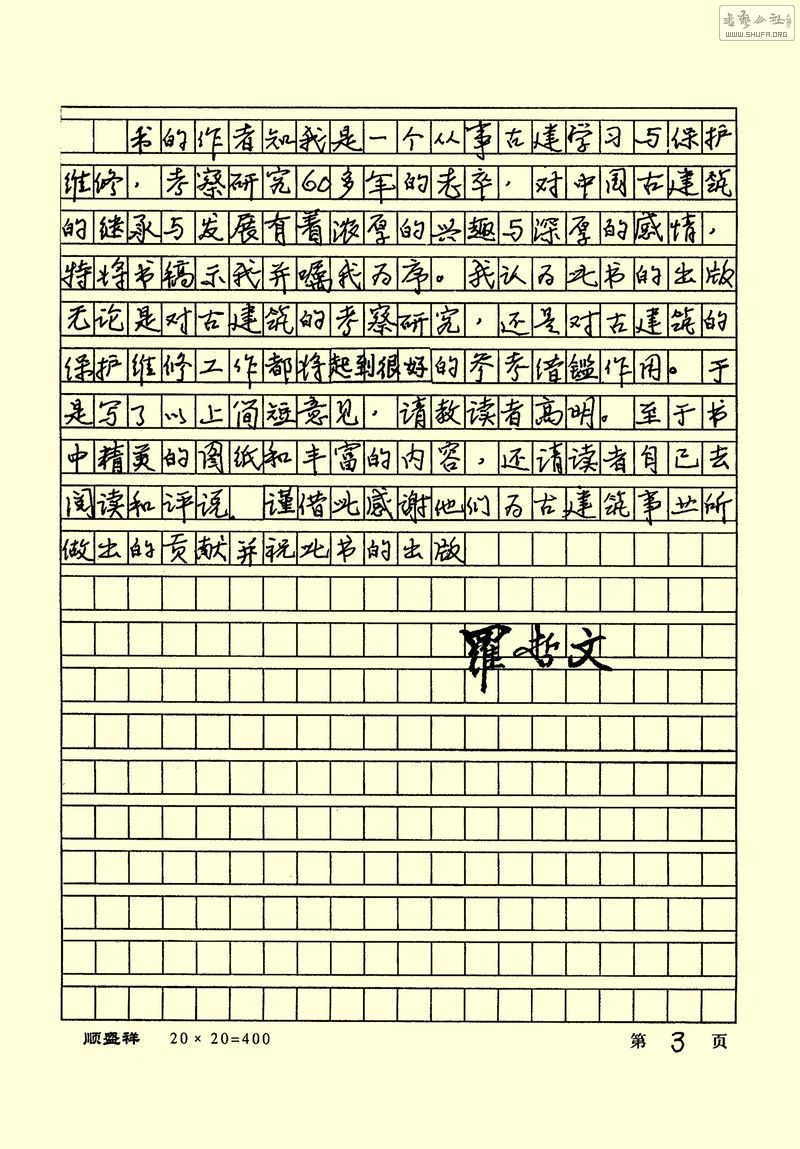 书艺公社
WWW.SHUFA.ORG
书的作者知我是一个从事古建学习与保护
维修，考察研究60多年的老卒，对中国古建筑
的继承与发展有着浓厚的兴趣与深厚的感情，
特将书稿示我并嘱我为序。我认为此书的出版
无论是对古建筑的考察研究，还是对古建筑的
保护维修工作都将起到很好的参考借鑑作用。于
是写了以上简短意见，请教读者高明。至于书
中精美的图纸和丰富的内容，还请读者自己去
阅读和评说。谨借此感谢他们为古建筑事业所
做出的贡献并祝此书的出版
罗哲文
顺盛祥 20×20=400 第 3 页